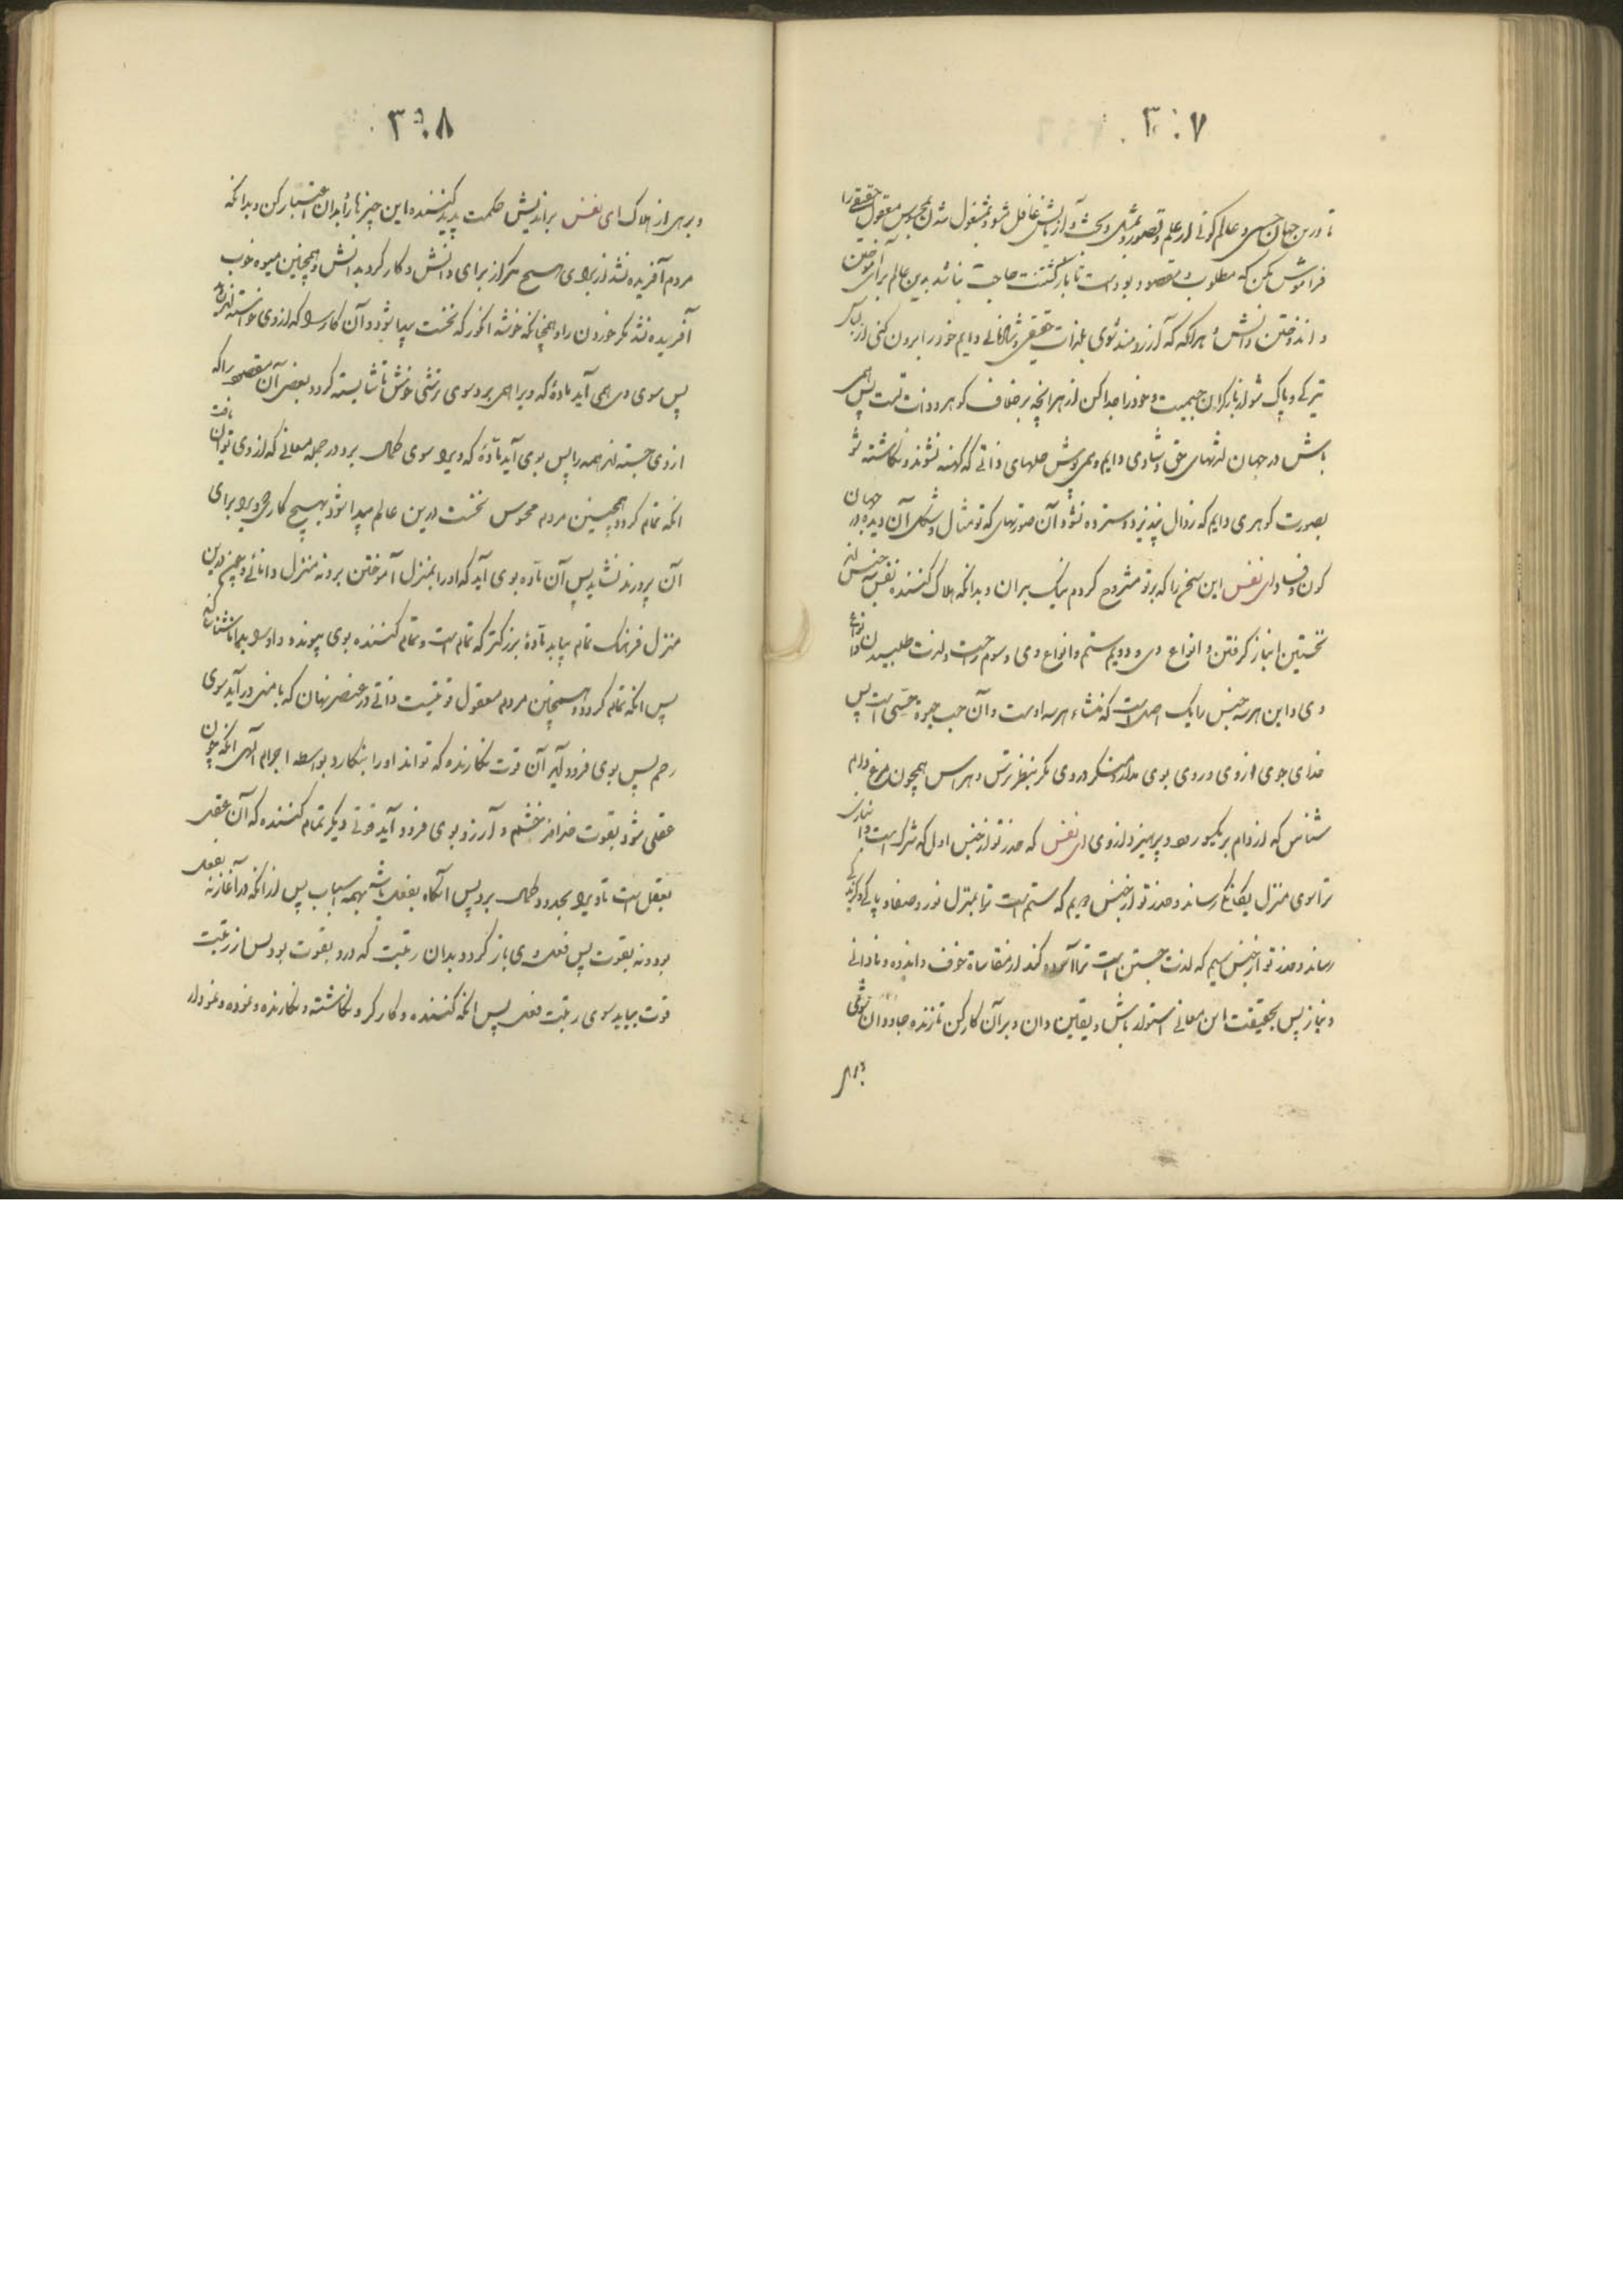 ۳۰۷
تا درین جهان حسی و عالم کونی از علم و تصور و تمثل و بحث و آزمایش غافل مشو و مشغول شدن بمحسوس معقول حقیقی را
فراموش مکن که مطلوب و مقصود بوده است تا بازگشتنت حاجت نباشد بدین عالم برای آموختن
و اندوختن دانش و هرآنکه که آرزومند شوی بلذات حقیقی و شادمانی دایم خود را بیرون کنی از
تیرگی و پاک شو از بار گران جسمیت و خود را جدا کن از هر آنچه بر خلاف گوهر و ذات تست پس همی
باش در جهان لذتهای حق و شادی دایم و می پوش حلهای ذاتی که کهنه نشوند و نگاشته شو
بصورت گوهری دایم که زوال نپذیرد و سترده نشود آن صورتهای که تو مثال و شکل آن دیدهٔ در جهان
کون و فساد ای نفس این سخن را که بر تو مشروح کردم نیک بدان و بدانکه هلاک کننده نفس سه جنس اند
نخستین انباز گرفتن و انواع وی و دویم ستم و انواع وی و سوم راحت و لذت طلبیدن و انواع
وی و این هر سه جنس را یک اصل است که منشاء هر سه اوست و آن حب حیوة حسی است پس
خدای جوی از وی و روی بوی مدار و منگر در وی مگر بنظر ترس و هراس همچون مرغ دام
شناس که از دام بر یکسو رود و پرهیزد از وی ای نفس که حذر تو از جنس اول که شرک است و انبازی
ترا سوی منزل یگانگی رساند و حذر تو از جنس دویم که ستم است ترا بمنزل نور و صفا و پاکی
رساند و حذر تو از جنس سیم که لذت جستن است ترا آسوده کند از مقاسات خوف و اندوه و نادانی
و نیاز پس بحقیقت این معانی استوار باش و یقین دان و بر آن کار کن تا زنده و جاودان شوی
۳۰۸
و برهی از هلاک ای نفس براندیش حکمت پدید کننده این چیزها را بدان اعتبار کن و بدانکه
مردم آفریده نشد از برای هیچ مگر از برای دانش و کار کرد بدانش و همچنین میوه خوب
آفریده نشد مگر خوردن را و همچنانکه خوشه انگور که نخست پیدا شود و آن کار را که از وی خواسته اند
پس سوی وی همی آید مادهٔ که ویرا همی برد سوی ترشی خوش تا شایسته گردد بعضی آن مقصود را که
از وی جسته اند همه را پس بوی آید مادهٔ که ویرا سوی کمال برد در جمله معانی که از وی توان یافت
آنکه تمام گردد همچنین مردم محسوس نخست درین عالم پیدا شود بهیچ کار که ویرا برای
آن پرورند نشاید پس آن ماده بوی آید که او را بمنزل آموختن برد نه منزل دانائی و چون درین
منزل فرهنگ تمام بیابد مادهٔ بزرگتر که تمام است و تمام کننده بوی پیوندد و او را بیماناشناسا کند
پس آنکه تمام گردد و همچنین مردم معقول قوتیست ذاتی در عنصر نهان که با منی در آید سوی
رحم پس بوی فرود آید آن قوت نگارنده که تواند او را بنگارد بواسطه اجرام آلهی آنکه چون
عقلی شود بقوت خداوند خشم و آرزو بوی فرود آید قوتی دیگر تمام کننده که آن عقل
بفعل است تا ویرا بحدود کمال برد پس آنگاه بفعل باشد بهمه اسباب پس از آنکه در آغاز نه بفعل
بود و نه بقوت پس فعلش وی باز گردد بدان رغبت که در و بقوت بود پس از رغبت
قوت بیاید سوی رغبت فعل پس آنکه کننده و کارگر و نگاشته و نگارنده و نموده و نمودار